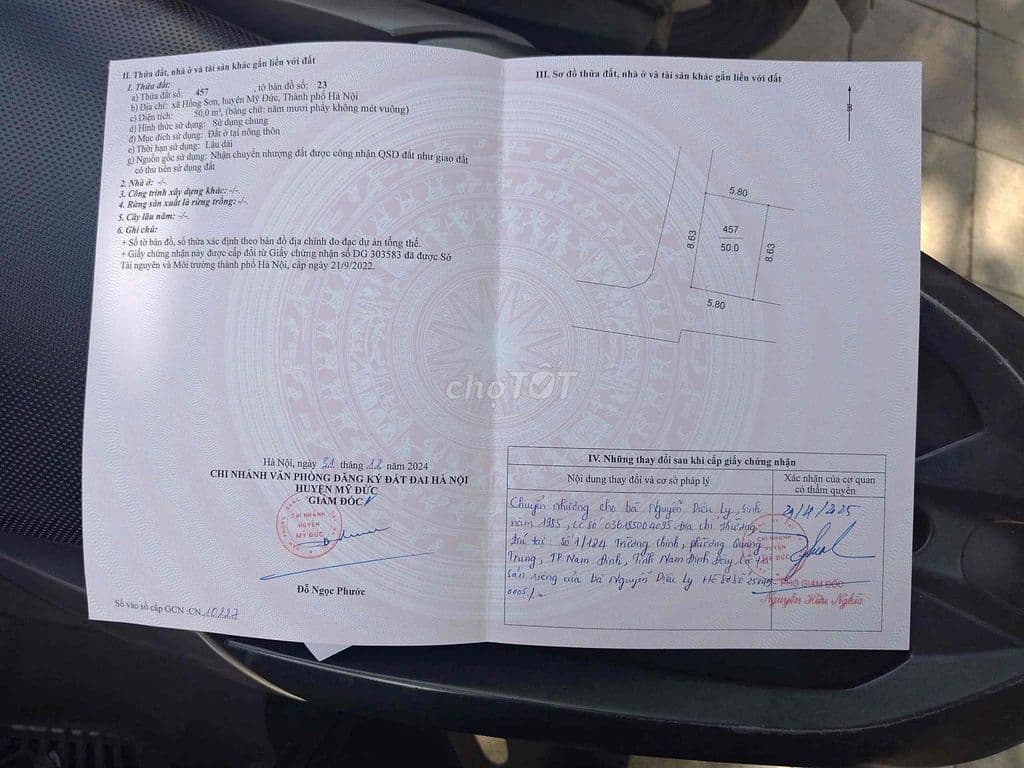 II. Thửa đất, nhà ở và tài sản khác gắn liền với đất
1. Thửa đất:
a) Thửa đất số: 457 , tờ bản đồ số: 23
b) Địa chỉ: xã Hồng Sơn, huyện Mỹ Đức, Thành phố Hà Nội
c) Diện tích: 50,0 m², (bằng chữ: năm mươi phẩy không mét vuông)
d) Hình thức sử dụng: Sử dụng chung
đ) Mục đích sử dụng: Đất ở tại nông thôn
e) Thời hạn sử dụng: Lâu dài
g) Nguồn gốc sử dụng: Nhận chuyển nhượng đất được công nhận QSD đất như giao đất
có thu tiền sử dụng đất
2. Nhà ở: -/-
3. Công trình xây dựng khác: -/-.
4. Rừng sản xuất là rừng trồng:-/-.
5. Cây lâu năm: -/-
6. Ghi chú:
+ Số tờ bản đồ, số thửa xác định theo bản đồ địa chính đo đạc dự án tổng thể.
+ Giấy chứng nhận này được cấp đổi từ Giấy chứng nhận số DG 303583 đã được Sở
Tài nguyên và Môi trường thành phố Hà Nội, cấp ngày 21/9/2022.
Hà Nội, ngày 31 tháng 12 năm 2024
CHI NHÁNH VĂN PHÒNG ĐĂNG KÝ ĐẤT ĐAI HÀ NỘI
HUYỆN MỸ ĐỨC
GIÁM ĐỐC
CHI NHÁNH
HUYỆN
MỸ ĐỨC
Đỗ Ngọc Phước
Số vào sổ cấp GCN :CN 10227
III. Sơ đồ thửa đất, nhà ở và tài sản khác gắn liền với đất
B
5.80
8.63
457
50.0
8.63
5.80
chợTỐT
IV. Những thay đổi sau khi cấp giấy chứng nhận
Nội dung thay đổi và cơ sở pháp lý
Xác nhận của cơ quan
có thẩm quyền
Chuyển nhượng cho bà Nguyễn Diệu Ly, Sinh
năm 1985, CC số 036185004095. Địa chỉ thường
trú tại: Số 1/124 Trương Định, phường Quang
Trung, TP Nam Định, Tỉnh Nam Định đây là tài
sản riêng của bà Nguyễn Diệu Ly Hồ sơ số
0005/.
29/4/2025
CHI NHÁNH
HUYỆN
MỸ ĐỨC
PHÓ GIÁM ĐỐC
Nguyễn Hữu Nghĩa